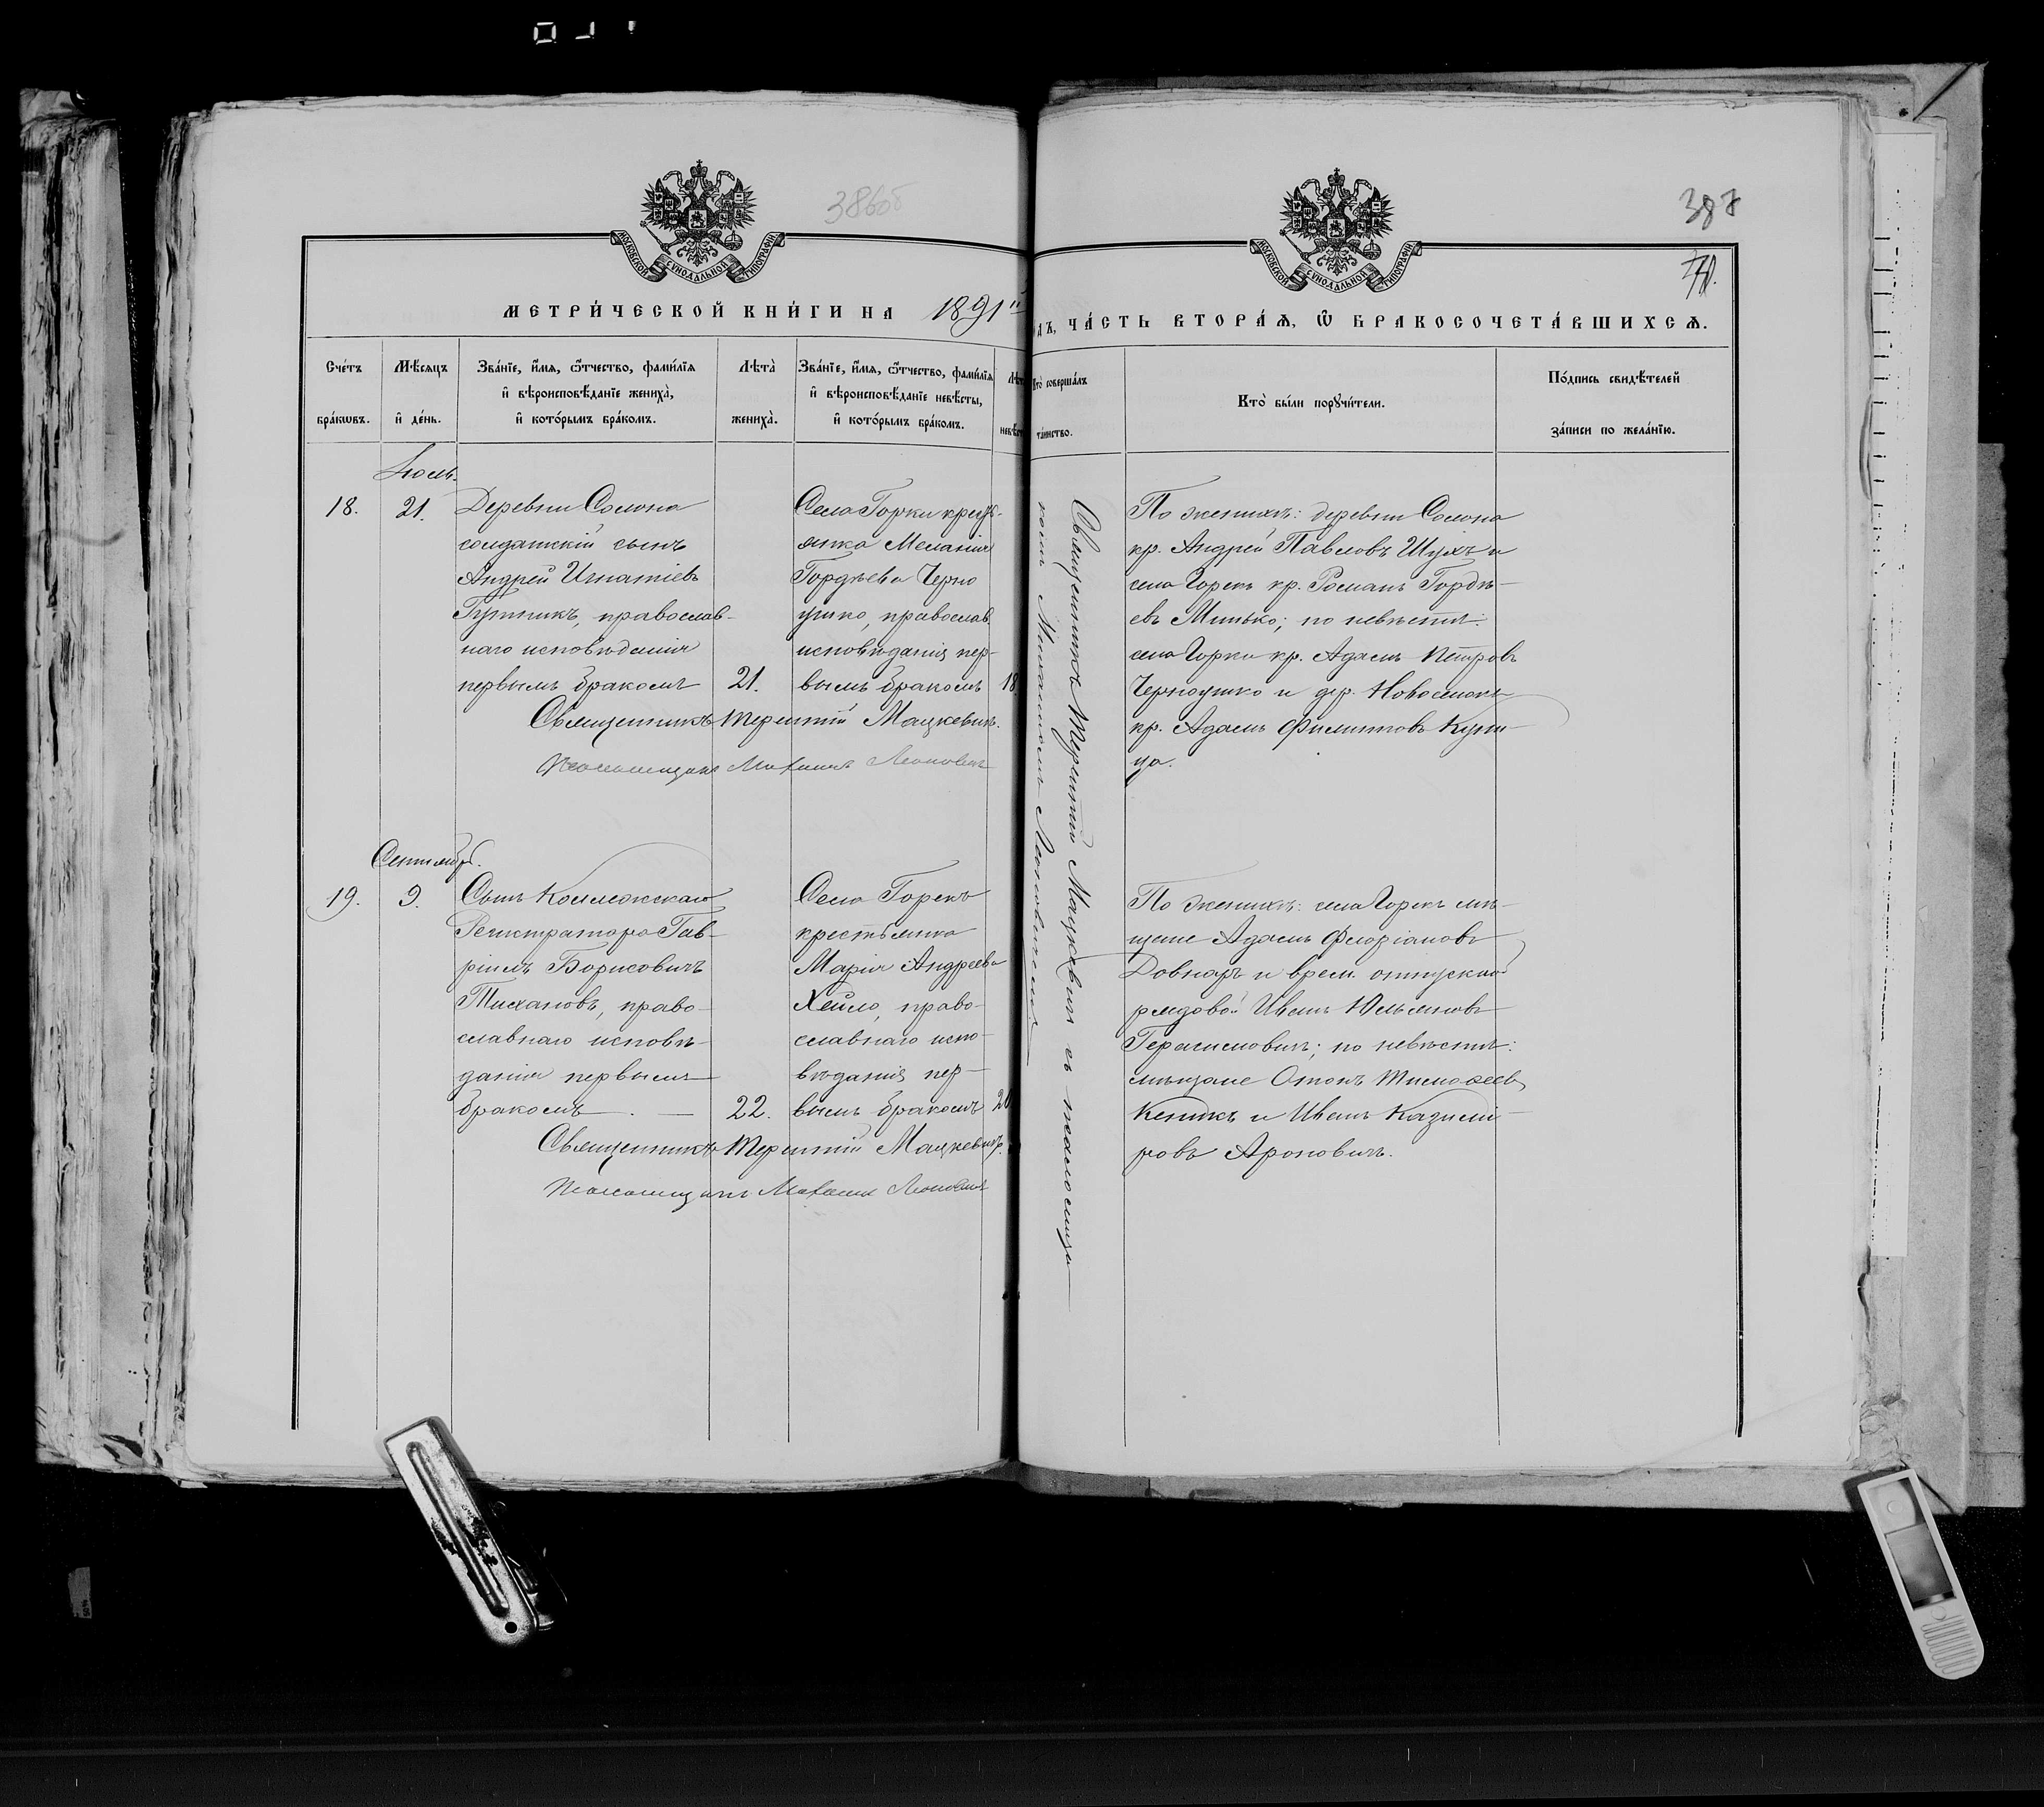 386об
387
МОСКОВСКОЙ СѴНОДАЛЬНОЙ ТИПОГРАФІИ
МОСКОВСКОЙ СѴНОДАЛЬНОЙ ТИПОГРАФІИ
МЕТРИ́ЧЕСКОЙ КНИ́ГИ НА 1891
ДЪ, ЧА́СТЬ ВТОРА́Ѧ, Ѽ БРАКОСОЧЕТА́ВШИХСѦ.
Сче́тъ бра́кѡвъ.
Мѣ́сѧцъ и҆ де́нь.
Зва́нїе, и҆́мѧ, ѻ҆́тчество, фами́лїѧ
и҆ вѣроисповѣ́данїе жениха̀,
и҆ кото́рымъ бра́комъ.
Лѣта̀ жениха̀.
Зва́нїе, и҆́мѧ, ѻ҆́тчество, фами́лїѧ
и҆ вѣроисповѣ́данїе невѣ́сты,
и҆ кото́рымъ бра́комъ.
Кто̀ соверша́лъ та́инство.
Кто̀ бы́ли порꙋчи́тели.
По́дпись свидѣ́телей
за́писи по жела́нїю.
Іюль.
18.
21.
Деревни Солона
солдатскій сынъ
Андрей Игнатіевъ
православ-
наго исповѣданія
первымъ бракомъ
21.
Село Горки крест-
янка Меланія
Гордѣева Черно
ушко, православ.
исповѣданія пер-
вымъ бракомъ
18.
Священникъ Терентій Мацкевичъ.
Псаломщикъ Михаилъ Леоновичъ
По женихѣ: деревни Солона
кр. Андрей Павловъ Шухъ и
села Горекъ кр. Романъ Гордѣ-
евъ Минько; по невѣстѣ:
села Горки кр. Адамъ Петровъ
Черноушко и дер. Новоселокъ
кр. Адамъ Филиповъ Купи-
ца.
Священникъ Терентій Мацкевичъ съ псаломщи-
комъ Михаиломъ Леоновичемъ
Сентябрь.
19.
9.
Сынъ Коллежскаго
Регистратора Гав-
ріилъ Борисовичъ
Тихановъ, право-
славнаго исповѣ-
данія первымъ
бракомъ.
22.
Села Горекъ
крестьянка
Марія Андреева
Хейло, право-
славнаго испо-
вѣданія пер-
вымъ бракомъ
20
Священникъ Терентій Мацкевичъ.
Псаломщикъ Михаилъ Леоновичъ
По женихѣ: села Горекъ мѣ-
щане Адамъ Флоріановъ
Довнаръ и врем. отпускной
рядовой Иванъ Юльяновъ
Герасимовичъ; по невѣстѣ:
мѣщане Отонъ Тимоѳеевъ
и Иванъ Казими-
ровъ Ароновичъ.